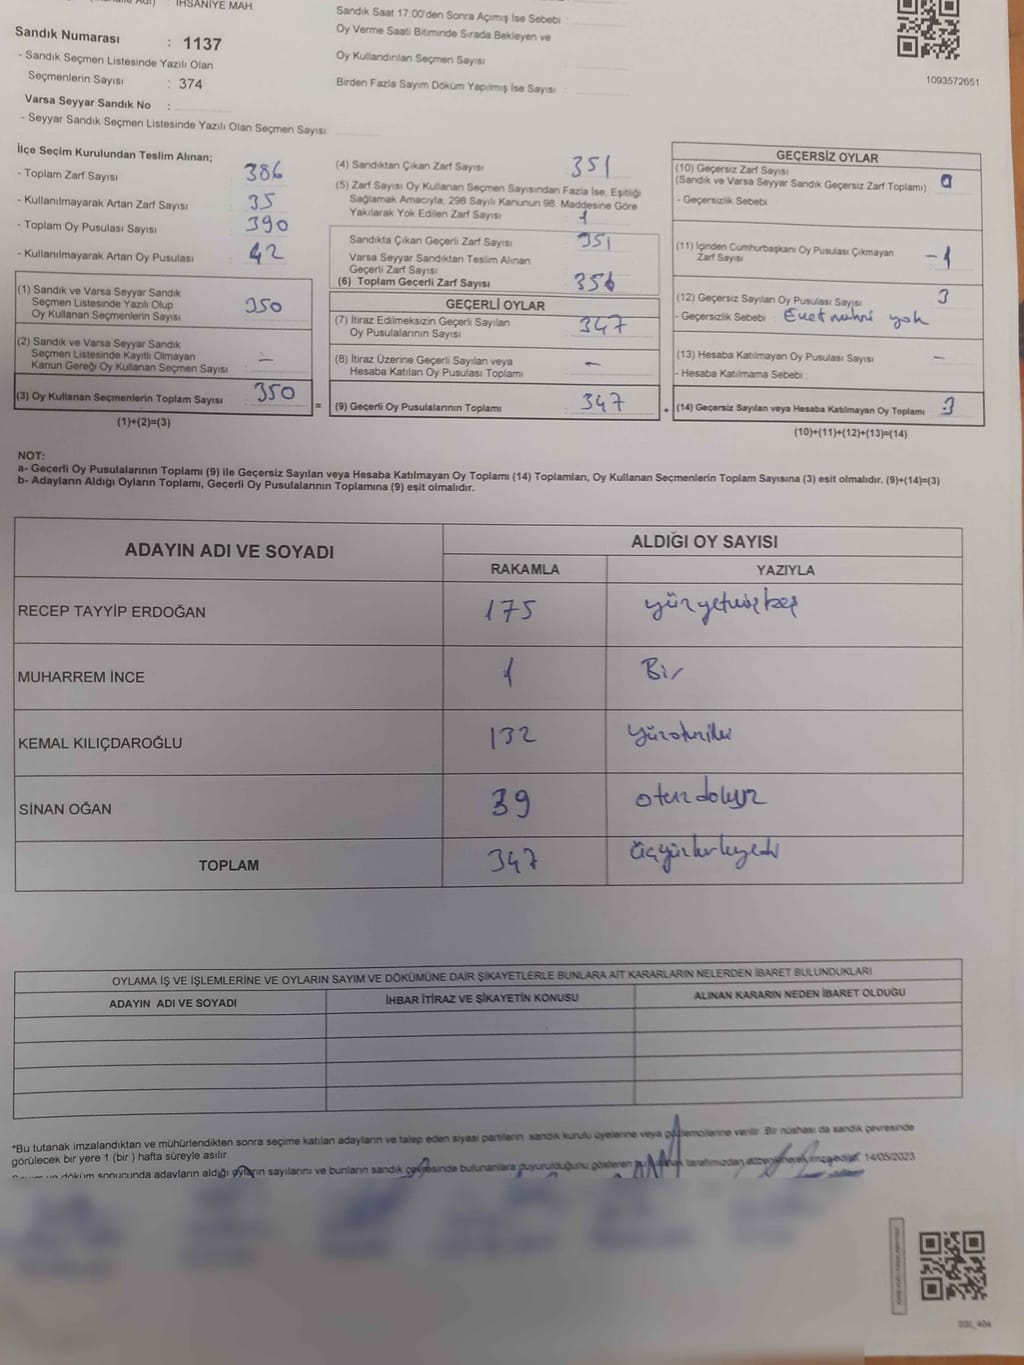 : İHSANİYE MAH.
Sandık Numarası : 1137
- Sandık Seçmen Listesinde Yazılı Olan
Seçmenlerin Sayısı : 374
Varsa Seyyar Sandık No :
- Seyyar Sandık Seçmen Listesinde Yazılı Olan Seçmen Sayısı:
Sandık Saat 17:00'den Sonra Açımış İse Sebebi :
Oy Verme Saati Bitiminde Sırada Bekleyen ve
Oy Kullandırılan Seçmen Sayısı
Birden Fazla Sayım Döküm Yapılmış İse Sayısı :
1093572651
İlçe Seçim Kurulundan Teslim Alınan;
- Toplam Zarf Sayısı 386
- Kullanılmayarak Artan Zarf Sayısı 35
- Toplam Oy Pusulası Sayısı 390
- Kullanılmayarak Artan Oy Pusulası 42
(1) Sandık ve Varsa Seyyar Sandık
Seçmen Listesinde Yazılı Olup
Oy Kullanan Seçmenlerin Sayısı 350
(2) Sandık ve Varsa Seyyar Sandık
Seçmen Listesinde Kayıtlı Olmayan
Kanun Gereği Oy Kullanan Seçmen Sayısı : –
(3) Oy Kullanan Seçmenlerin Toplam Sayısı 350
(1)+(2)=(3)
(4) Sandıktan Çıkan Zarf Sayısı 351
(5) Zarf Sayısı Oy Kullanan Seçmen Sayısından Fazla İse, Eşitliği
Sağlamak Amacıyla, 298 Sayılı Kanunun 98. Maddesine Göre
Yakılarak Yok Edilen Zarf Sayısı 1
Sandıkta Çıkan Geçerli Zarf Sayısı 351
Varsa Seyyar Sandıktan Teslim Alınan
Geçerli Zarf Sayısı
(6) Toplam Geçerli Zarf Sayısı
GEÇERLİ OYLAR
(7) İtiraz Edilmeksizin Geçerli Sayılan
Oy Pusulalarının Sayısı 347
(8) İtiraz Üzerine Geçerli Sayılan veya
Hesaba Katılan Oy Pusulası Toplamı –
= (9) Geçerli Oy Pusulalarının Toplamı 347
GEÇERSİZ OYLAR
(10) Geçersiz Zarf Sayısı
(Sandık ve Varsa Seyyar Sandık Geçersiz Zarf Toplamı) 0
- Geçersizlik Sebebi :
(11) İçinden Cumhurbaşkanı Oy Pusulası Çıkmayan
Zarf Sayısı -1
(12) Geçersiz Sayılan Oy Pusulası Sayısı 3
- Geçersizlik Sebebi : Evet mührü yok
(13) Hesaba Katılmayan Oy Pusulası Sayısı –
- Hesaba Katılmama Sebebi :
+ (14) Geçersiz Sayılan veya Hesaba Katılmayan Oy Toplamı 3
(10)+(11)+(12)+(13)=(14)
NOT:
a- Geçerli Oy Pusulalarının Toplamı (9) ile Geçersiz Sayılan veya Hesaba Katılmayan Oy Toplamı (14) Toplamları, Oy Kullanan Seçmenlerin Toplam Sayısına (3) eşit olmalıdır. (9)+(14)=(3)
b- Adayların Aldığı Oyların Toplamı, Geçerli Oy Pusulalarının Toplamına (9) eşit olmalıdır.
ADAYIN ADI VE SOYADI ALDIĞI OY SAYISI
RAKAMLA YAZIYLA
RECEP TAYYİP ERDOĞAN 175 yüzyetmişbeş
MUHARREM İNCE 1 Bir
KEMAL KILIÇDAROĞLU 132 yüzotuziki
SİNAN OĞAN 39 otuzdokuz
TOPLAM 347 üçyüzkırkyedi
OYLAMA İŞ VE İŞLEMLERİNE VE OYLARIN SAYIM VE DÖKÜMÜNE DAİR ŞİKAYETLERLE BUNLARA AİT KARARLARIN NELERDEN İBARET BULUNDUKLARI
ADAYIN ADI VE SOYADI İHBAR İTİRAZ VE ŞİKAYETİN KONUSU ALINAN KARARIN NEDEN İBARET OLDUĞU
*Bu tutanak imzalandıktan ve mühürlendikten sonra seçime katılan adayların ve talep eden siyasi partilerin sandık kurulu üyelerine veya gözlemcilerine verilir. Bir nüshası da sandık çevresinde
görülecek bir yere 1 (bir ) hafta süreyle asılır.
sonucunda adayların aldığı oyların sayılarını ve bunların sandık çevresinde bulunanlara duyurulduğunu gösteren bu tutanak tarafımızdan düzenlenerek imza edildi. 14/05/2023